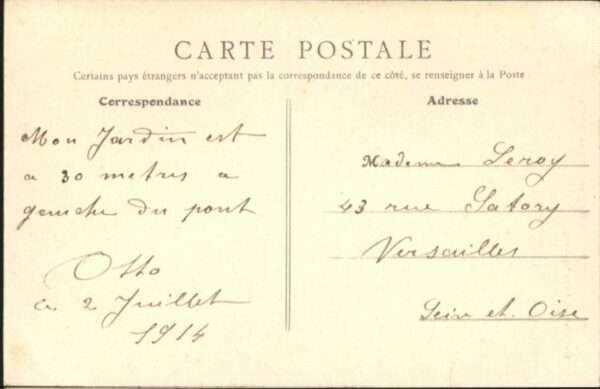 CARTE POSTALE
Certains pays étrangers n'acceptant pas la correspondance de ce côté, se renseigner à la Poste
Correspondance
Mon Jardin est
a 30 metres a
gauche du pont
Otto
ce 2 Juillet
1914
Adresse
Madame Leroy
43 rue Satory
Versailles
Seine et Oise